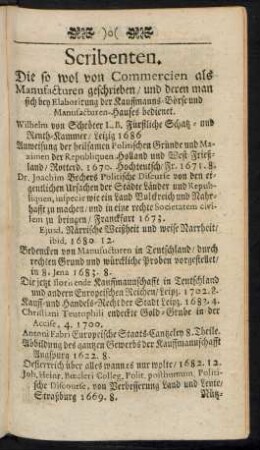 )o(
Scribenten.
Die so wol von Commercien als
Manufacturen geschrieben / und deren man
sich bey Elaborirung der Kauffmanns-Börse und
Manufacturen-Hauses bedienet.
Wilhelm von Schröder I. B. Fürstliche Schatz- und
Renth-Kammer / Leipzig 1686
Anweisung der heilsamen Politischen Gründe und Ma-
ximen der Republiquen Holland und West Frieß-
land / Rotterd. 1670. Hochteutsch / Fr. 1671. 8.
Dr. Joachim Bechers Politische Discurse von den ei-
gentlichen Ursachen der Städte Länder und Repub-
liquen, in specie wie ein Land Volckreich und Nahr-
hafft zu machen / und in eine rechte Societatem civi-
lem zu bringen / Franckfurt 1673.
Ejusd. Närrische Weißheit und weise Narrheit /
ibid. 1680. 12.
Bedencken von Manufacturen in Teutschland / durch
rechten Grund und würckliche Proben vorgestellet /
in 8. Jena 1683. 8.
Die jetzt florirende Kauffmannschafft in Teutschland
und andern Europeischen Reichen / Leipz. 1702. 8.
Kauff- und Handels-Recht der Stadt Leipz. 1683. 4.
Christiani Teutophili entdeckte Gold-Grube in der
Accise, 4. 1700.
Antonii Fabri Europeische Staats-Cantzeley 8. Theile.
Abbildung des gantzen Gewerbs der Kauffmannschafft
Augspurg 1622. 8.
Oesterreich über alles wann es nur wolte / 1682. 12.
Joh. Heinr. Bœcleri Colleg. Polit. posthumum, Politi-
sche Discourse, von Verbesserung Land und Leute /
Straßburg 1669. 8.
Nütz-